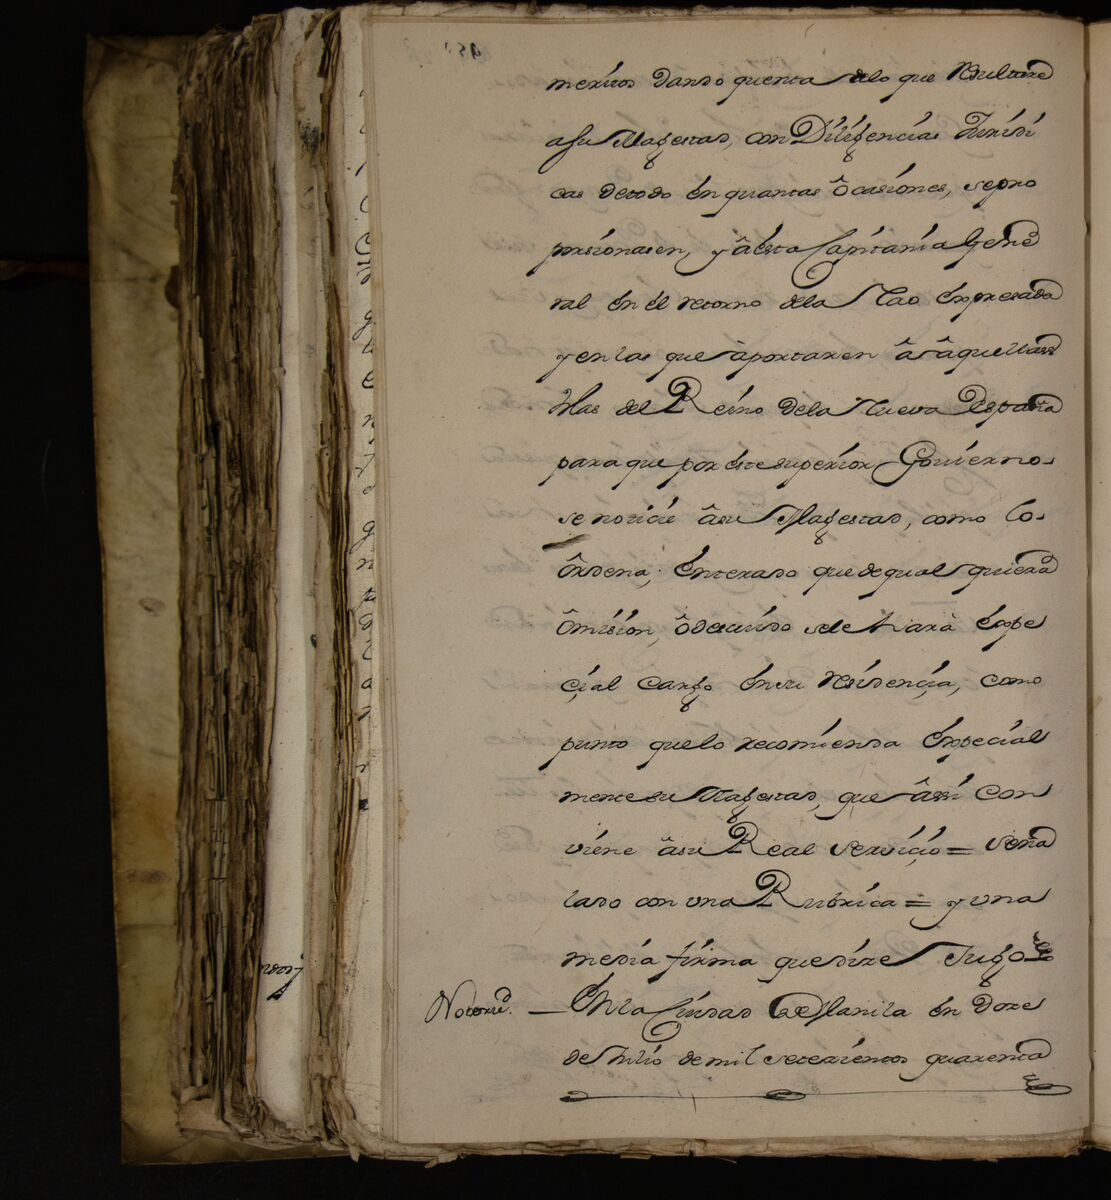 meritos dando quenta delo que Resultare
asu Magestad, con Diligencias Juridi
cas detodo en quantas ôcasiones, sepro
porsionasen, y âesta Capitania Gene
ral en el retorno dela Nao expresada
y en las que âportaren âaâquellas
Islas del Reino dela Nueva España
para que por este superior Govierno
se noticie âsu Magestad, como lo
ôrdena; enterado que de qual quiera
ômision, ôdescuido sele hará espe
cial cargo ensu Residencia, como
punto quelo recomienda especial
mente su Magestad, que âssi con
viene âsu Real servicio = Seña
lado con una Rubrica = y una
media firma quedize
Notorie.d — En la Ciudad de Manila en doze
de Julio de mil setecientos quarenta